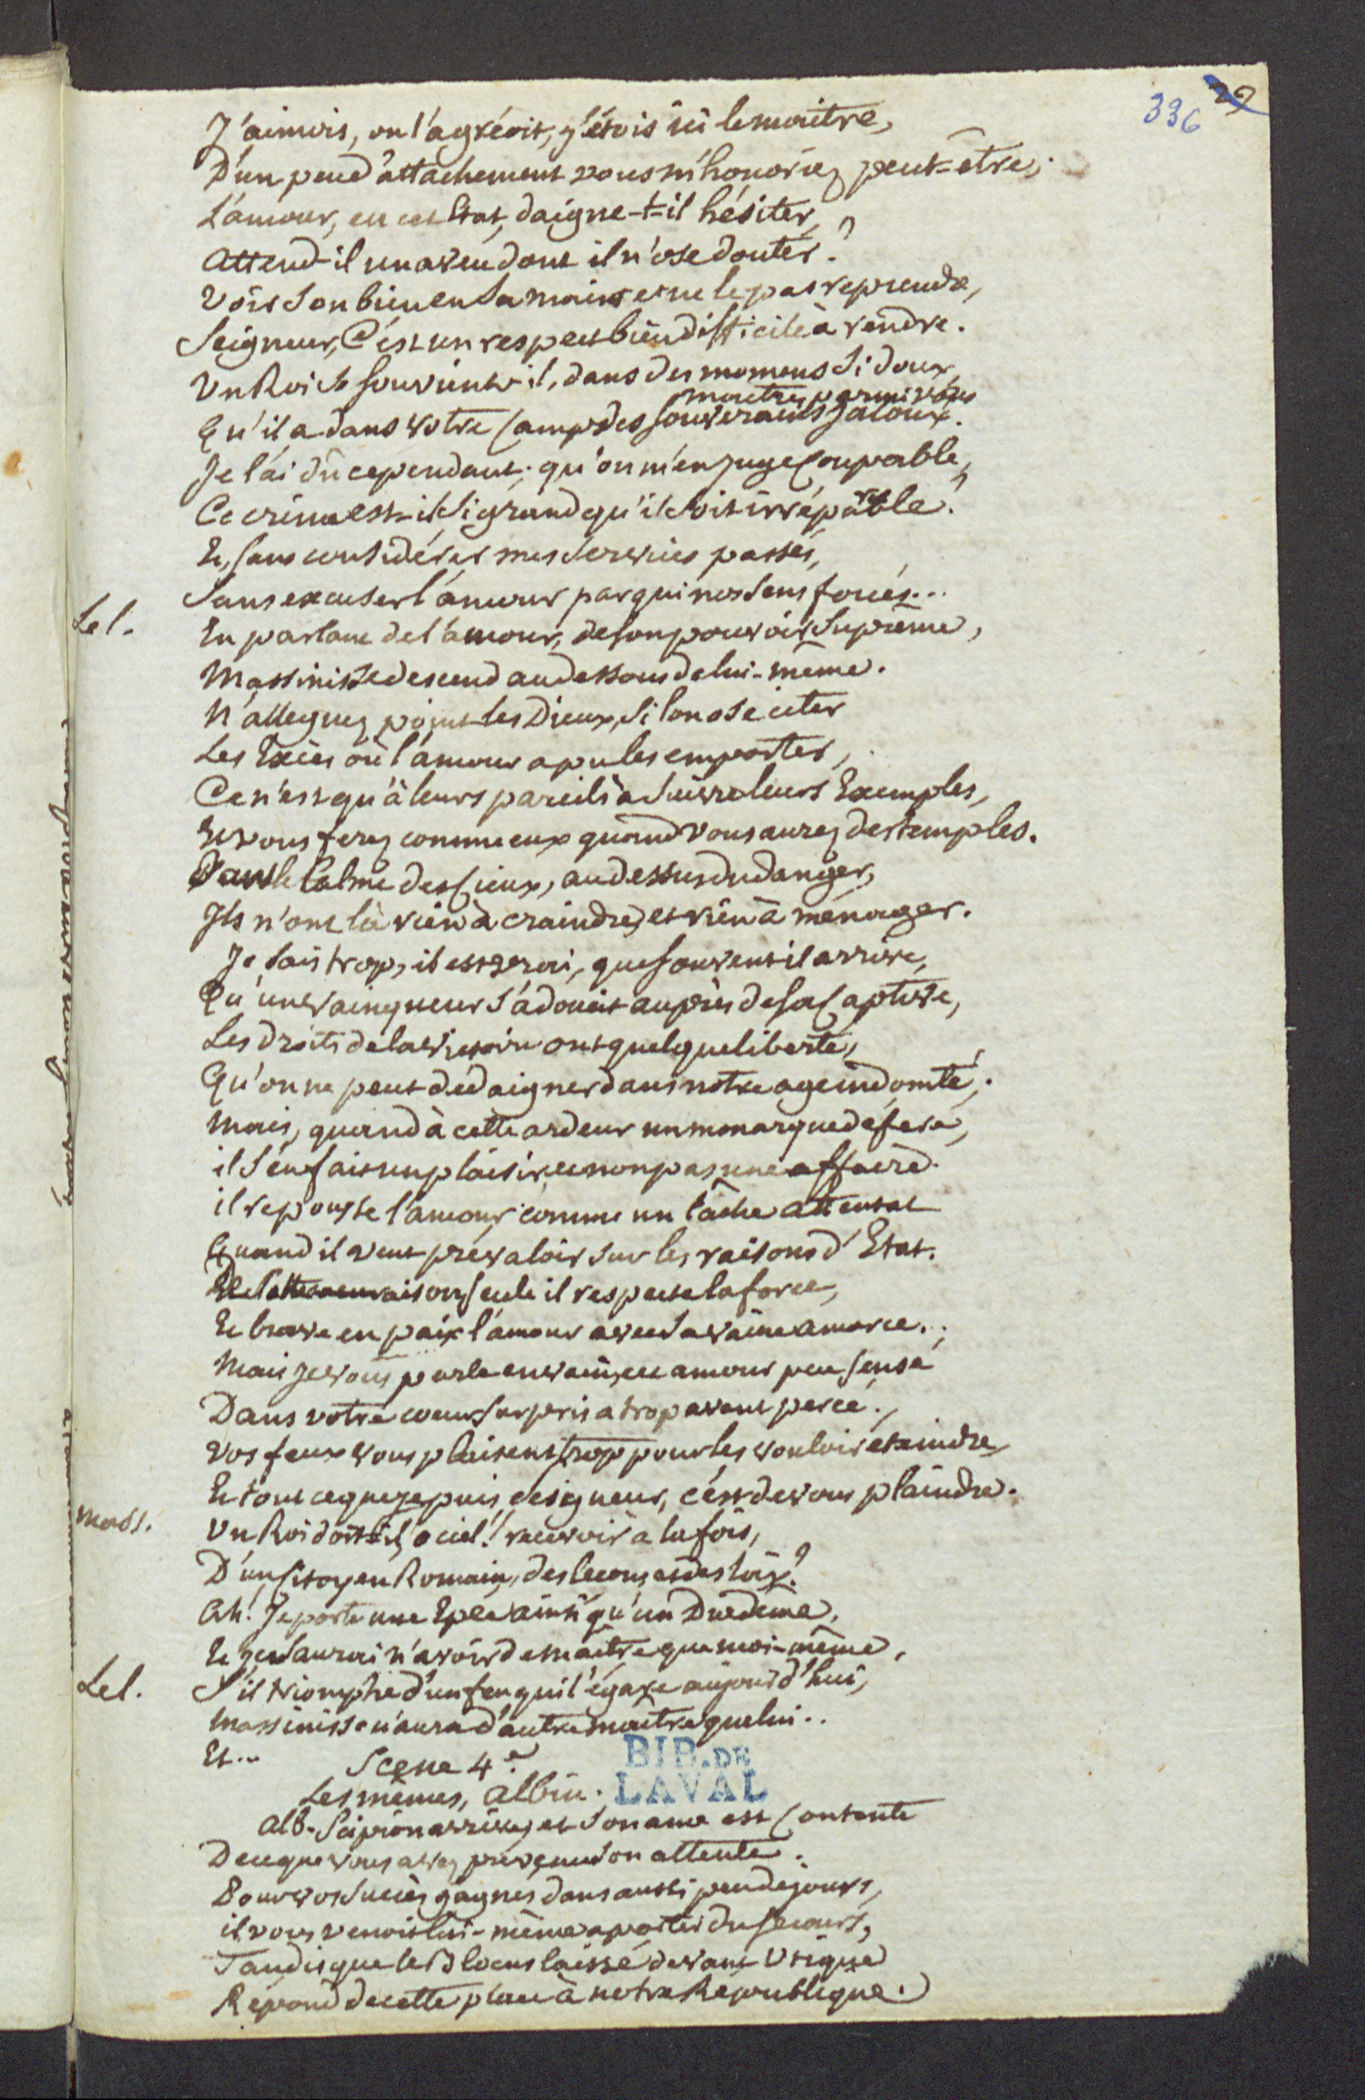 336 29
J'aimois, on l'agréoit, j'étois ici le maitre,
D'un peu d'attachement vous m'honoriez peut-être;
L'amour, en cet Etat, daigne-t-il hésiter,
Attend-il un aveu dont il n'ose douter?
Voir son bien en sa main et ne le pas reprendre,
Seigneur, C'est un respect bien difficile à rendre.
Un Roi se souvient-il, dans des momens si doux,
maitres parmi vous
Qu'il a dans votre Camp des souverains jaloux.
Je l'ai dû cependant; qu'on m'en juge Coupable,
Ce crime est-il si grand qu'il soit irréparable?
Et, sans considérer mes services passés,
Sans excuser l'amour par qui nos sens forcés...
Lel. En parlant de l'amour, de son pouvoir Suprême,
Massinisse descend au dessous de lui-même.
N'alleguez point les Dieux, Si l'on ose citer
Les Excès où l'amour a pu les emporter,
Ce n'est qu'à leurs pareils à Suivre leurs Exemples,
Et vous ferez comme eux quand vous aurez des temples.
Dans le Calme des Cieux, au dessus du danger,
Ils n'ont là rien à craindre, et rien à ménager.
Je sais trop, il est vrai, que souvent il arrive,
Qu'un vainqueur s'adoucit auprès de sa Captive,
Les droits de la victoire ont quelque liberté,
Qu'on ne peut dédaigner dans notre age indomté;
Mais, quand à cette ardeur un monarque défere,
il s'en fait un plaisir et non pas une affaire.
il repousse l'amour comme un lâche attentat
Quand il veut prévaloir sur les raisons d'Etat.
De cette raison seule il respecte la force,
Et brave en paix l'amour avec sa vaine amorce.
Mais je vous parle en vain, cet amour peu sensé
Dans votre coeur surpris a trop avant percé;
vos feux vous plaisent trop pour les vouloir éteindre,
Et tout ce que je puis, seigneur, c'est de vous plaindre.
Mass. Un Roi doit-il, o ciel! recevoir à la fois,
D'un Citoyen Romain, des lecons et des loix?
Ah! Je porte une Epée ainsi qu'un Diadême,
Et je saurai n'avoir de maitre que moi-même.
Lel. S'il triomphe d'un feu qui l'égare aujourd'hui,
Massinisse n'aura d'autre maitre que lui..
Et...
Scene 4e.
Les mêmes, Albin.
Alb. Scipion arrive, et son ame est Contente
De ce que vous avez prévenu son attente.
Pour vos Succès gagnés dans aussi peu de jours,
il vous venoit lui-même aporter du secours,
Tandis que le Blocus laissé devant Utique
Répond de cette place à notre République.
BIB. DE
LAVAL